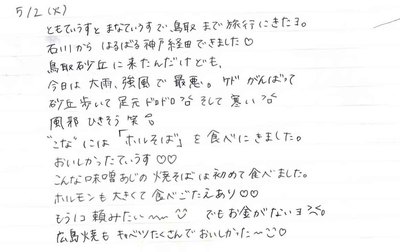 5/2 (火)
ともてぃうすと まなてぃうすで 鳥取 まで 旅行 にきたヨ。
石川から はるばる 神戸経由 できました♡
鳥取砂丘に来たんだけども、
今日は 大雨、強風で 最悪。ケド がんばって
砂丘歩いて 足元ドロドロ そして 寒い
風邪 ひきそう 笑
"こな"には「ホルそば」を食べにきました。
おいしかったてぃうす♡♡
こんな味噌あじの焼そばは初めて食べました。
ホルモンも大きくて食べごたえあり♡♡
もう1コ 頼みたい〜〜 でもお金がないヨ
広島焼もキャベツたくさんでおいしかた〜♡